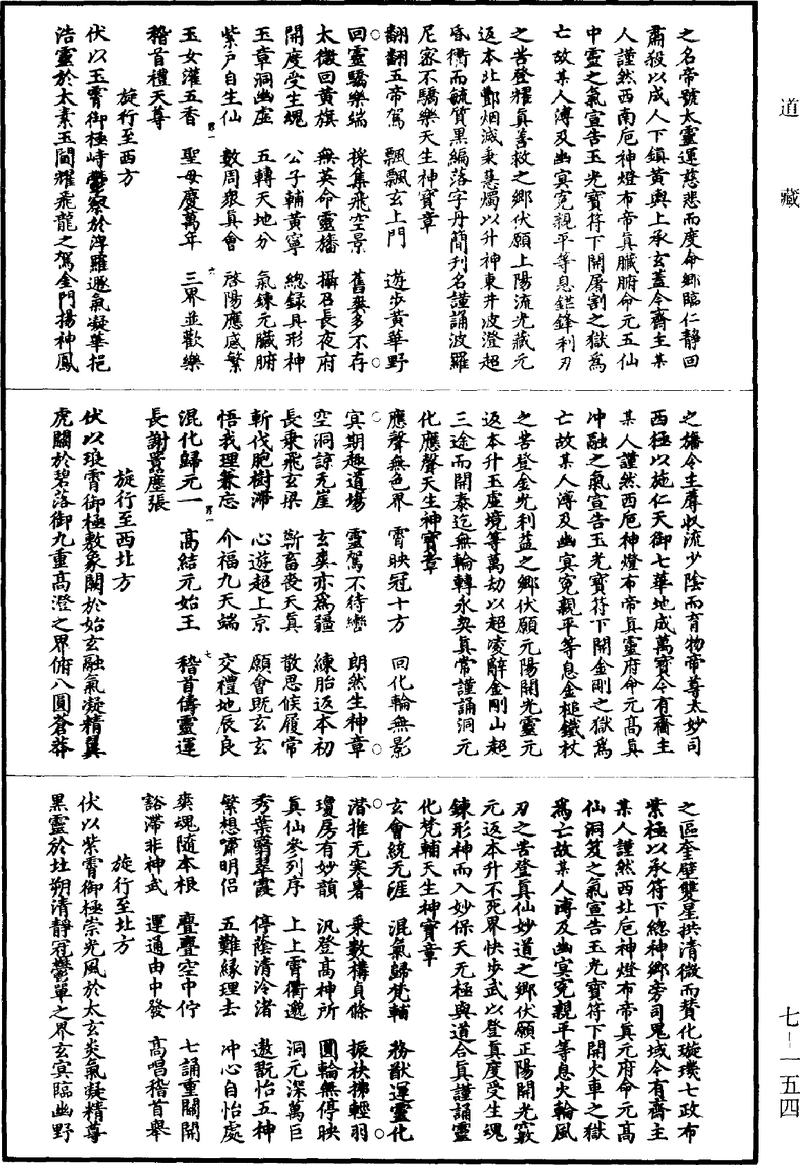 道藏
之名帝號太靈運慈悲而度命鄉臨仁靜回
肅殺以成人下鎮黃輿上承玄蓋今齋主某
人謹然西南厄神燈布帝真臟腑命元五仙
中靈之氣宣告玉光寶符下開屠割之獄為
亡故某人溥及幽冥冤親平等息鋩鋒利刃
之苦登耀真善救之鄉伏願上陽流光藏元
返本北酆烟滅秉慧燭以升神東井波澄超
昏衢而毓質黑編落字丹簡刊名謹誦波羅
尼蜜不驕樂天生神寶章
翻翻五帝駕　飄飄玄上門　遊步黃華野
回靈驕樂端　採集飛空景　舊爽多不存
太微回黃旗　無英命靈旛　攝召長夜府
開度受生魂　公子輔黃寧　總錄具形神
玉章洞幽虛　五轉天地分　氣鍊元臟腑
紫戶自生仙　數周眾真會　啓陽應感繁
玉女灌五香　聖母慶萬年　三界並歡樂
稽首禮天尊
旋行至西方
伏以玉霄御極峙靈察於浮羅遯氣凝華挹
浩靈於太素玉間耀飛龍之駕金門揚神鳳
之旛令主蓐收流少陰而育物帝尊太妙司
西極以施仁天御七華地成萬寶今有齋主
某人謹然西厄神燈布帝真靈府命元高真
冲融之氣宣告玉光寶符下開金剛之獄為
亡故某人溥及幽冥冤親平等息金槌鐵杖
之苦登金光利益之鄉伏願元陽開光靈元
返本升玉虛境等萬劫以超凌辭金剛山超
三途而開泰迄無輪轉永契真常謹誦洞元
化應聲天生神寶章
應聲無色界　霄映冠十方　回化輪無影
冥期趣道場　靈駕不待轡　朗然生神章
空洞諒無崖　玄爽亦為疆　練胎返本初
長乘飛玄梁　斷畜喪天真　散思候履常
斬伐胞樹滯　心遊超上京　願會既玄玄
悟我理兼忘　介福九天端　交禮地辰良
混化歸元一　高結元始王　稽首儔靈運
長謝景塵張
旋行至西北方
伏以琅霄御極敷象闕於始玄融氣凝精翼
虎關於碧落御九重高澄之界俯八圓蒼莽
之區奎壁雙星拱清微而贊化璇璣七政布
業極以承符下總神鄉旁司鬼域今有齋主
某人謹然西北厄神燈布帝真元府命元高
仙洞笈之氣宣告玉光寶符下開火車之獄
為亡故某人溥及幽冥冤親平等息火輪風
刃之苦登真仙妙道之鄉伏願正陽開光竅
元返本升不死界快步武以登真度受生魂
鍊形神而入妙保天元極與道合真謹誦靈
化梵輔天生神寶章
玄會統元涯　混氣歸梵輔　務猷運靈化
潛推元寒暑　乘數構貞條　振袂拂輕羽
瓊房有妙韻　汎登高神所　圓輪無停映
真仙參列序　上上霄衢邈　洞元深萬巨
秀葉翳翠霞　停蔭清泠渚　遨翫怡五神
繁想肅明侶　五難緣理去　冲心自怡處
爽魂隨本根　亹亹空中佇　七誦重關開
豁滯非神武　運通由中發　高唱稽首舉
旋行至北方
伏以紫霄御極崇光風於太玄炎氣凝精尊
黑靈於北朔清靜冠鬱單之界玄冥臨幽野
七－一五四